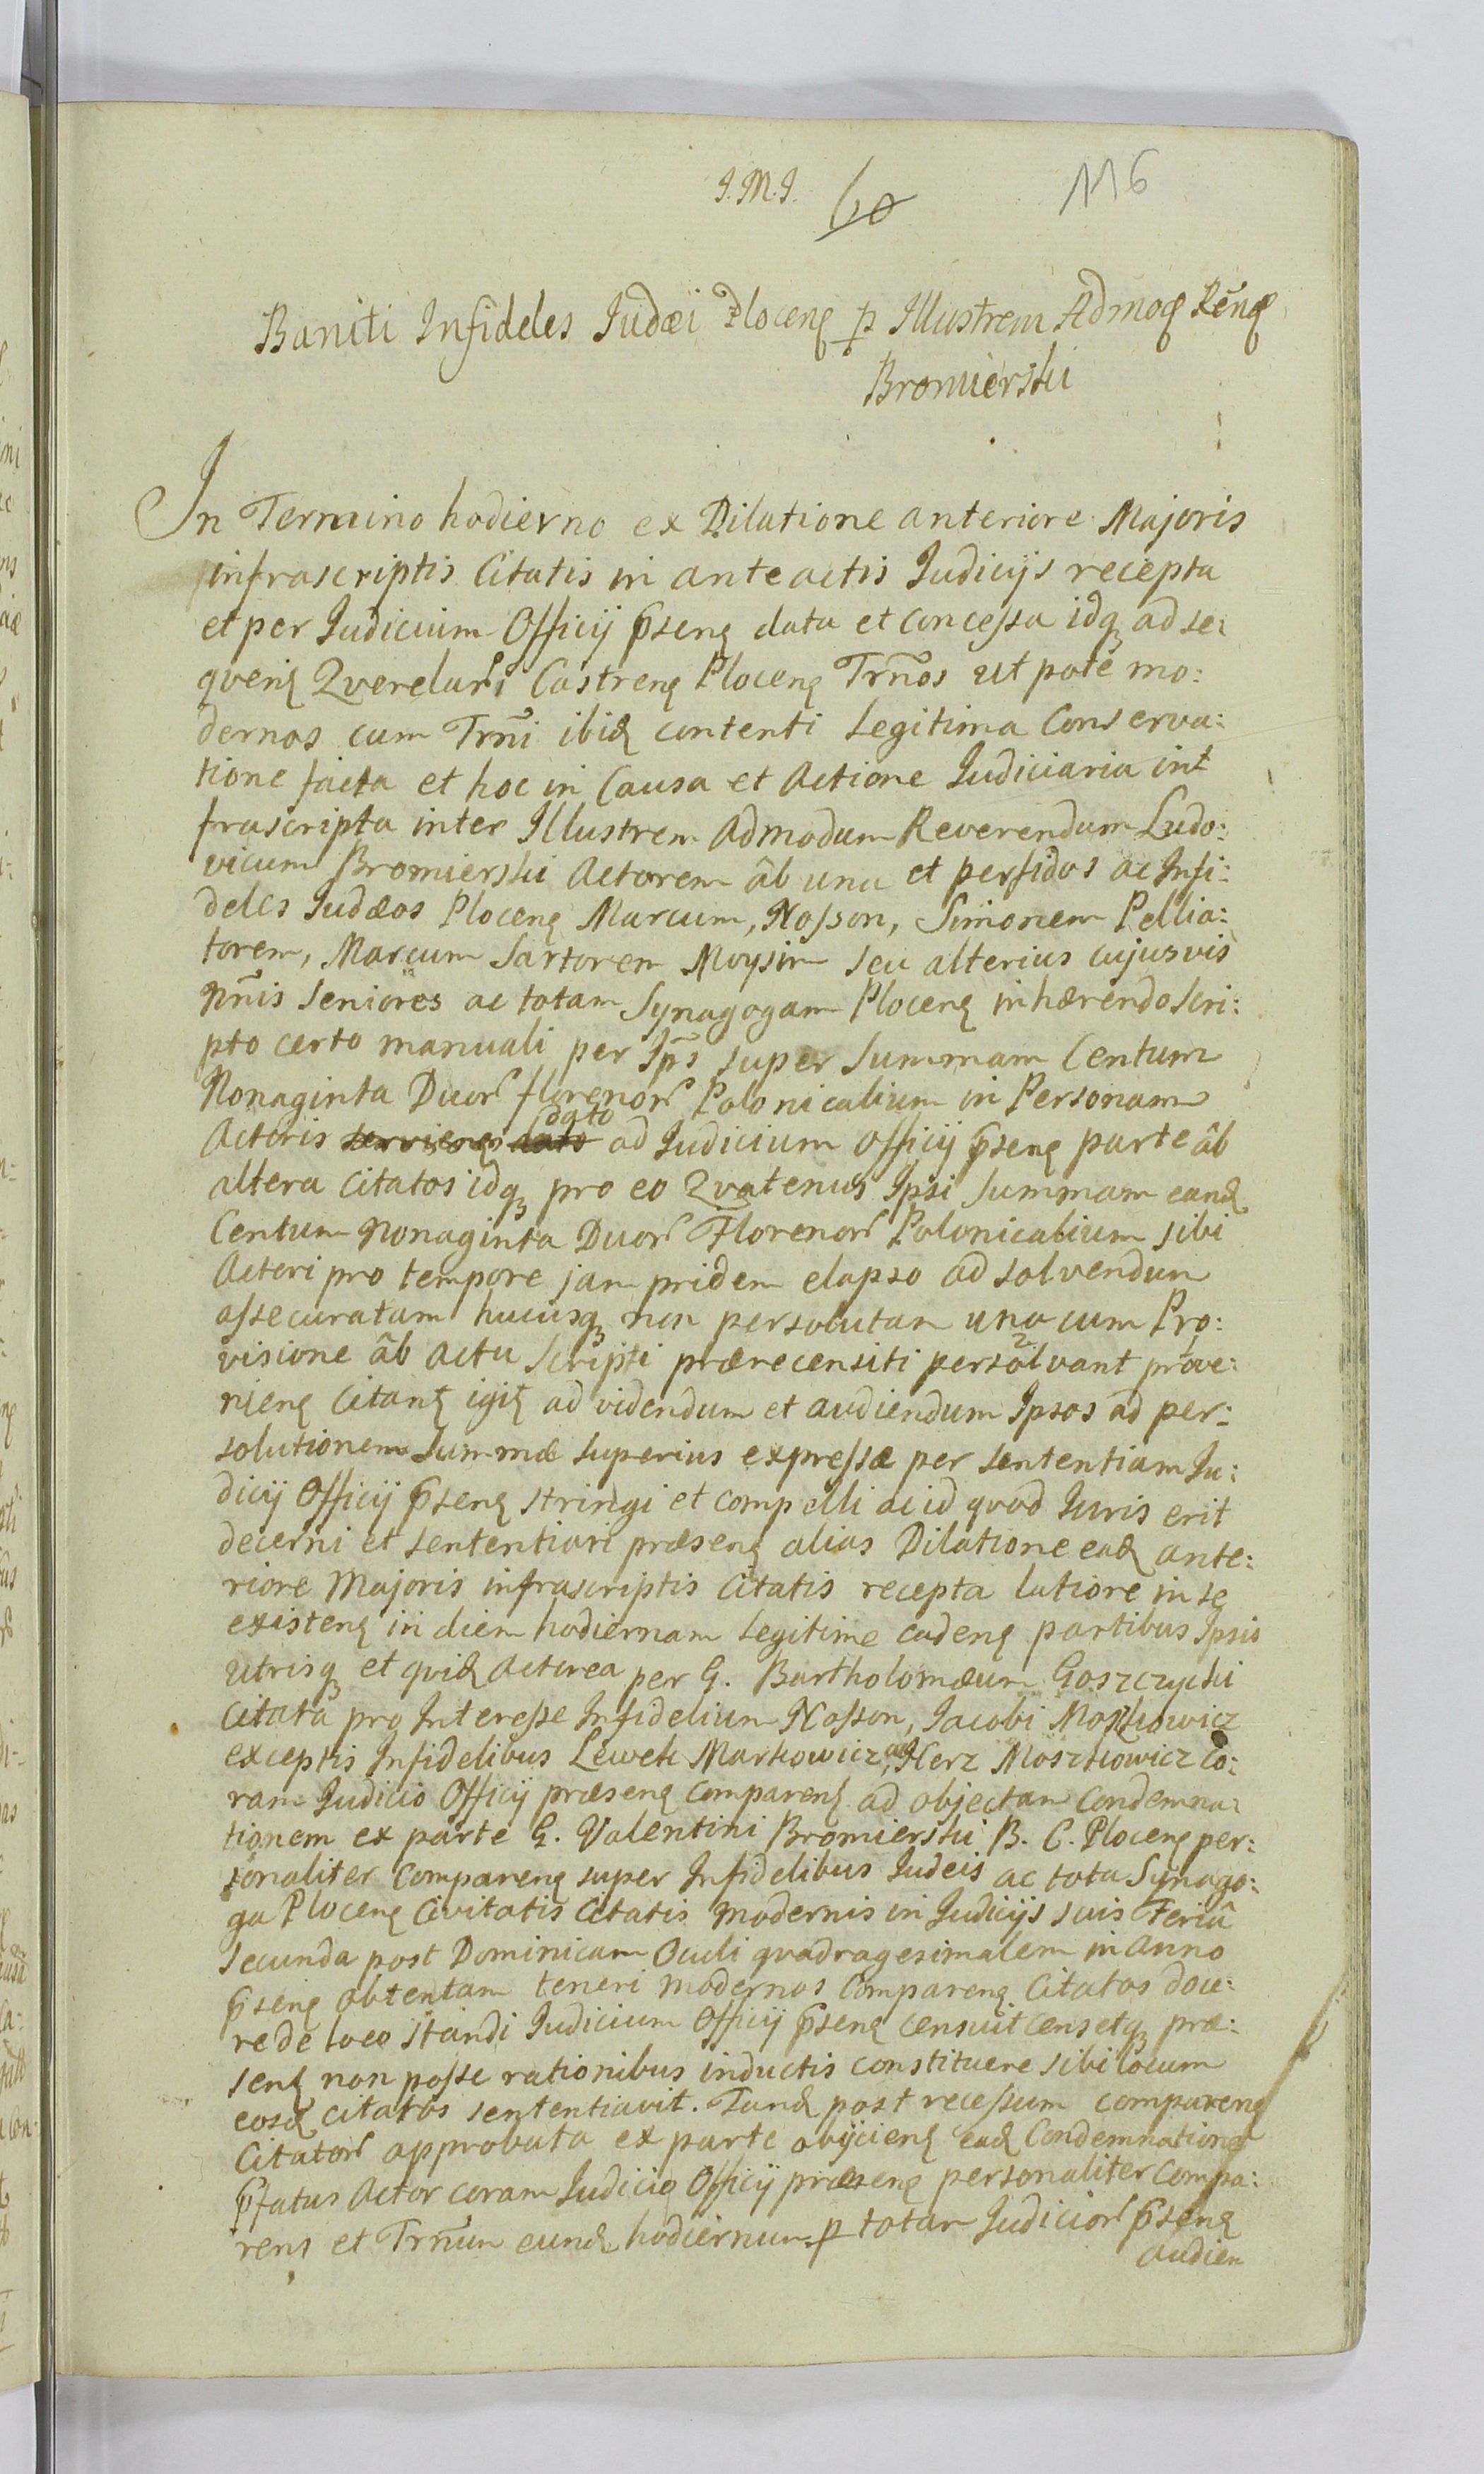 J. M. J. 60 116
Baniti Infideles Judæi Plocenꝭ ꝑ Illustrem Admoꝺ Rēnꝺ
Bromierski
In Termino hodierno ex Dilatione anteriore Majoris
infrascriptis Citatis in anteactis Judicijs recepta
et per Judicium Officij p̄senꝭ data et concessa idqꝫ ad se:
qvenꝭ Qverelari Castrenꝭ Plocenꝭ Trn̄os ut pote mo:
dernos cum Trn̄i ibiꝺ contenti Legitima Conserva:
tione facta et hoc in Causa et Actione Judiciaria inf
frascripta inter Illustrem Admodum Reverendum Ludo:
vicum Bromierski Actorem âb una et perfidos ac Infi:
deles Judæos Plocenꝭ Marcum, Nosson, Simonem Pellia:
torem, Marcum Sartorem Moysim seu alterius cujusvis
Nn̄is Seniores ac totam Synagogam Plocenꝭ inhærendo Scri:
pto certo manuali per Ip̄s super Summam Centum
Nonaginta Duorꝭ florenorꝭ Polonicalium in Personam
Actoris servienꝭ dato dato ad Judicium Officij p̄senꝭ parte âb
altera Citatos idqꝫ pro eo Qvatenus Ipsi Summam eanꝺ
Centum Nonaginta Duorꝭ Florenorꝭ Polonicalium sibi
Actori pro tempore jam pridem elapso ad solvendum
assecuratam hucusqꝫ non persolutam una cum Pro:
visione âb actu Scripti prærecensiti persolvant prove:
nienꝭ Citanꝭ igiꝭ ad videndum et audiendum Ipsos ad per:
solutionem Summæ superius expressæ per sententiam Ju:
dicij Officij p̄senꝭ stringi et compelli ac id qvod Juris erit
decerni et sententiari præsenꝭ alias Dilatione eaꝺ ante:
riore Majoris infrascriptis Citatis recepta latiore in se
existenꝭ in diem hodiernam legitime cadenꝭ partibus Ipsis
utrisqꝫ et qviꝺ Actorea per G. Bartholomæum Goszczycki
Citata pro Interesse Infidelium Nosson, Jacobi Moszkowicz
exceptis Infidelibus Lewek Markowicz, ac Herz Moszkowicz Co:
ram Judicio Officij præsenꝭ Comparenꝭ ad objectam Condemna:
tionem ex parte G. Valentini Bromierski B. C. Plocenꝭ per:
sonaliter Comparenꝭ super Infidelibus Judeis ac tota Synago:
ga Plocenꝭ Civitatis Citatis modernis in Judicijs suis Feriâ
Secunda post Dominicam Oculi qvadragesimalem in Anno
p̄senꝭ obtentam teneri modernos Comparenꝭ Citatos doce:
re de loco standi Judicium Officij p̄senꝭ censuit censetqꝫ præ:
senꝭ non posse rationibus inductis constituere sibi locum
eosꝺ citatos sententiavit. Tanꝺ post recessum comparenꝭ
Citatorꝭ approbata ex parte obijcienꝭ eaꝺ Condemnatione
p̄fatus Actor coram Judicio Officij præsenꝭ personaliter compa:
rens et Trn̄um eunꝺ hodiernum ꝑ totam Judiciorꝭ p̄senꝭ
audien